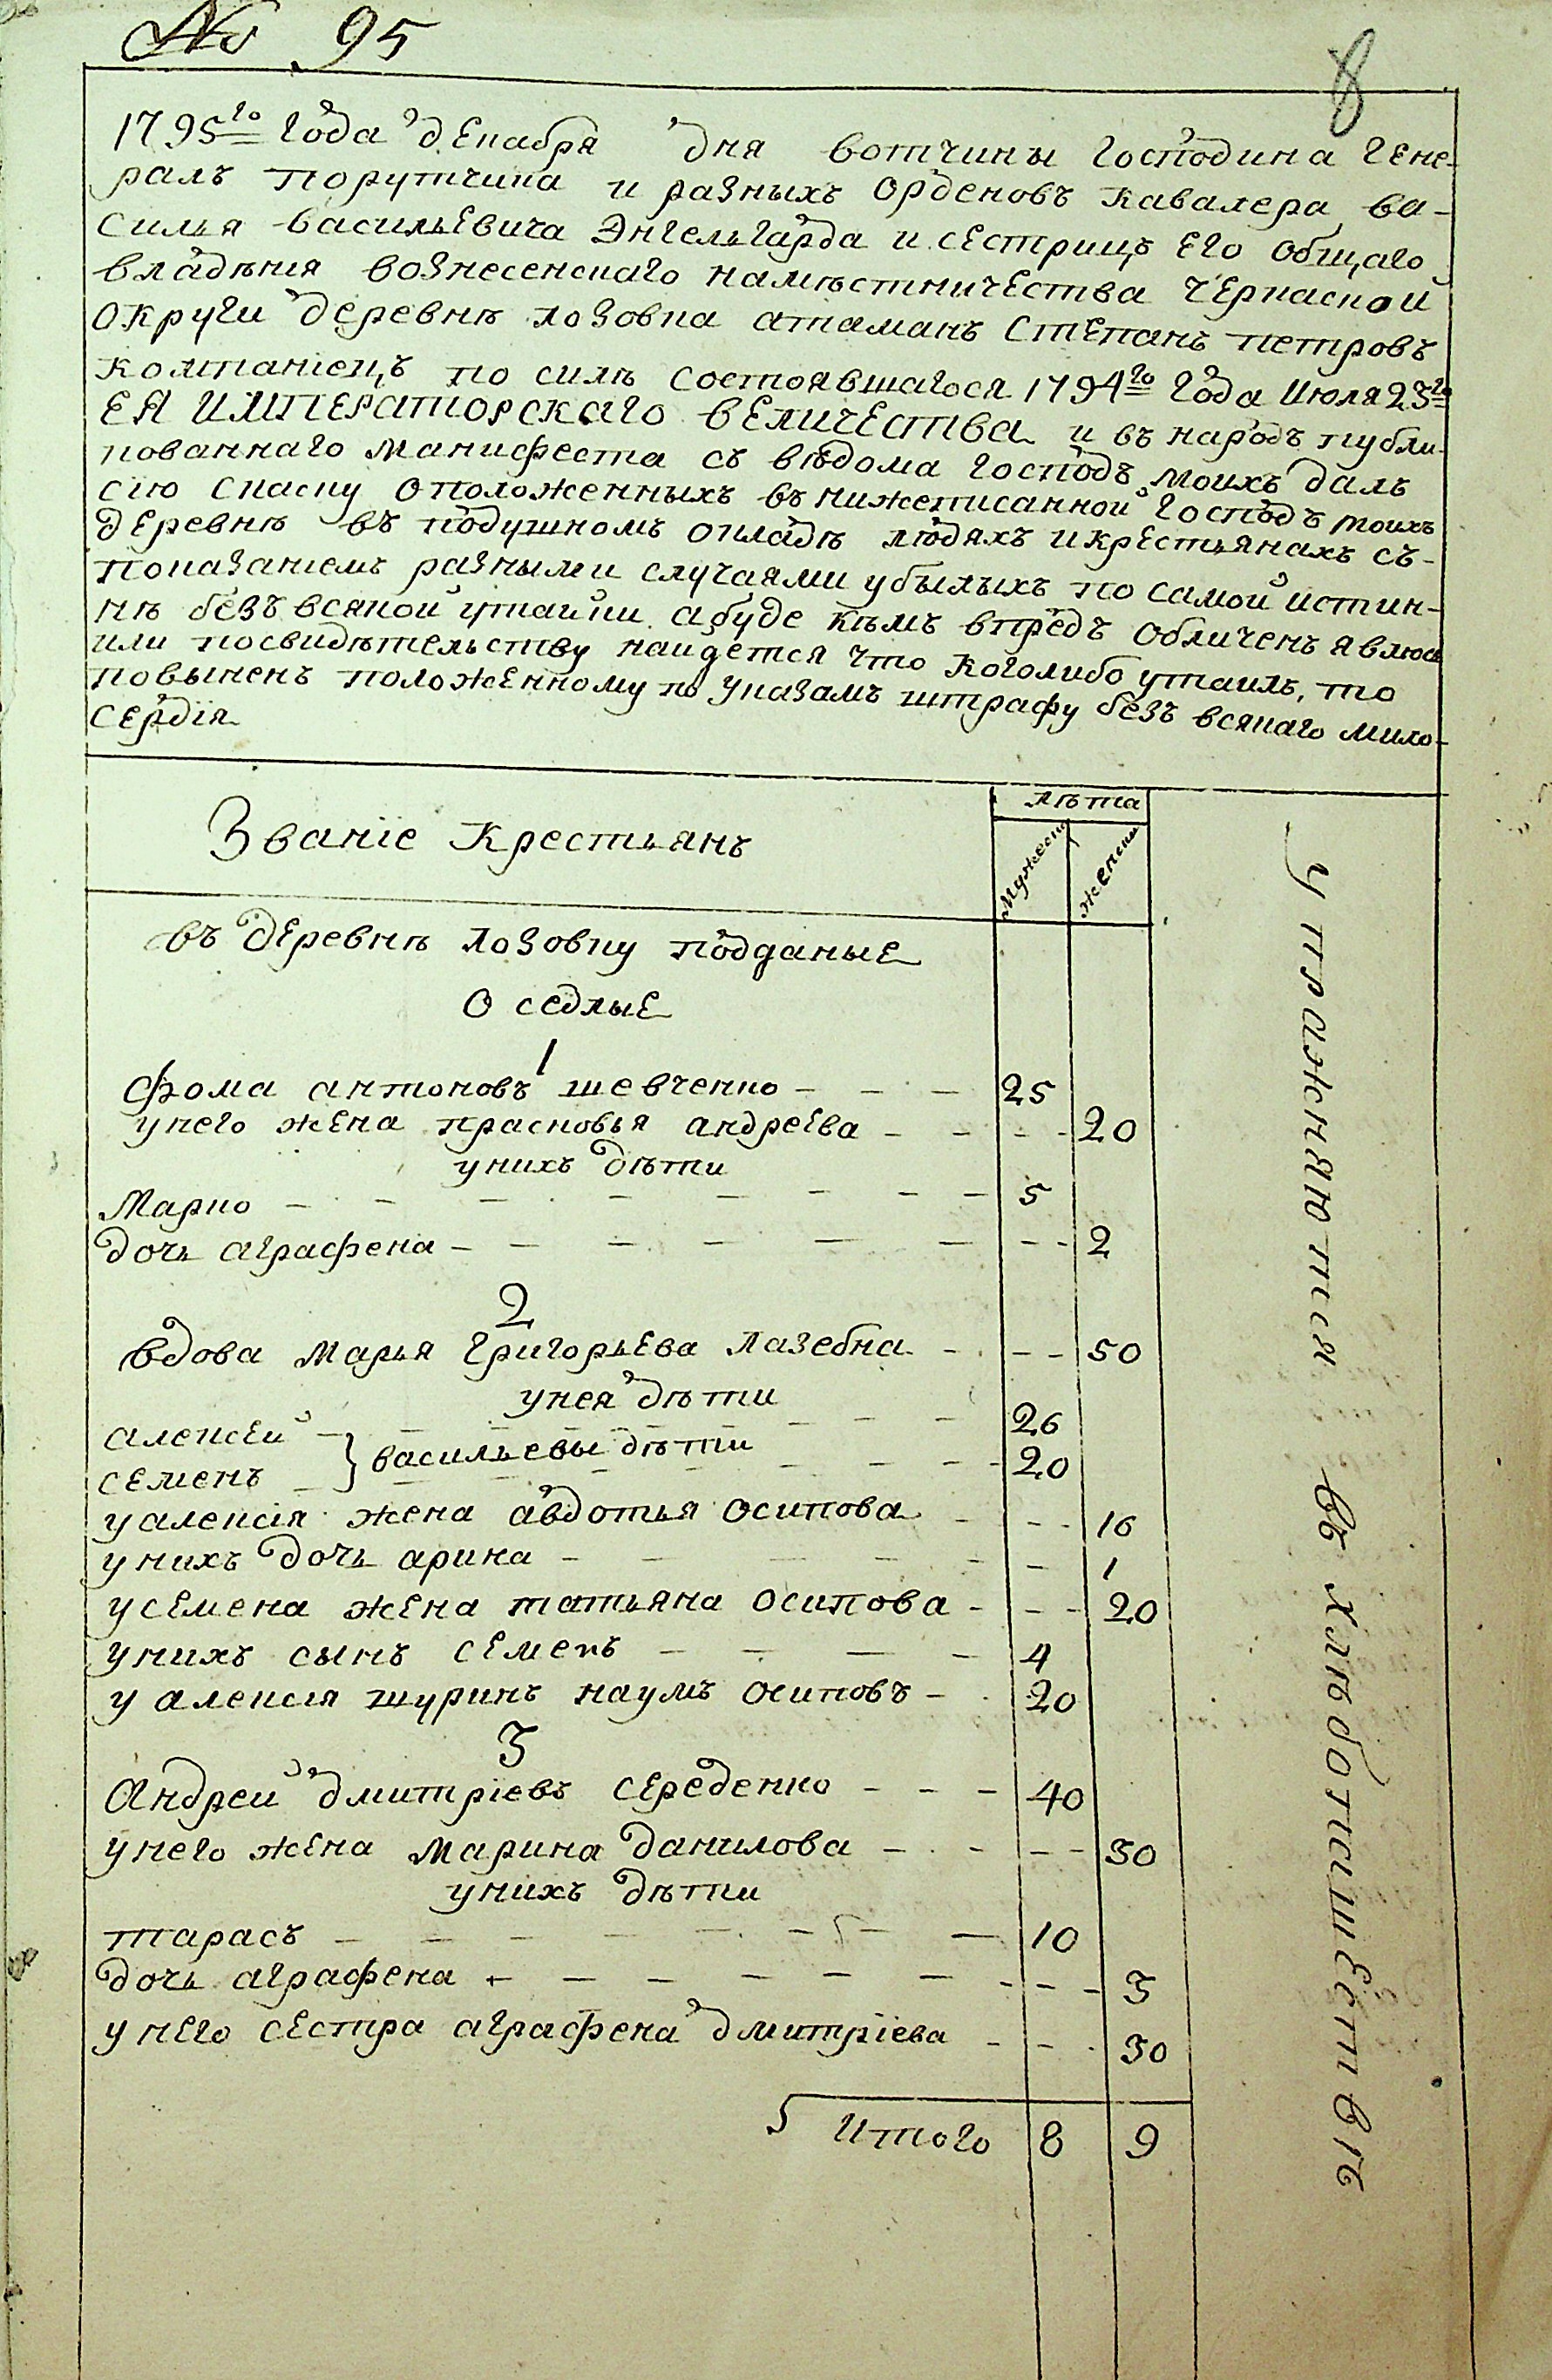 № 95
8
1795го года декабря дня вотчины господина гене-
ралъ порутчика и разныхъ орденовъ кавалера ва-
силья васильевича Энгельгарда и сестрицъ его общаго
владѣния вознесенскаго намѣстничества черкаской
округи деревнѣ лозовка атаманъ степанъ петровъ
компаніецъ по силѣ состоявшагося 1794го года июля 23го
ЕЯ ИМПЕРАТОРСКАГО ВЕЛИЧЕСТВА и въ народъ публи-
кованнаго манифеста съ вѣдома господъ моихъ далъ
сію скаску о положенныхъ въ нижеписанной господъ моихъ
деревнѣ въ подушномъ окладѣ людяхъ и крестьянахъ съ-
показаніемъ разными случаями убылыхъ по самой истин-
нѣ безъ всякой утайки а буде кѣмъ впредъ обличенъ явлюсь
или посвидѣтельству найдется что коголибо утаилъ, то
повыненъ положенному по указамъ штрафу безъ всякаго мило-
сердія
Званіе крестьянъ
лѣта
мужеск
женск
въ деревнѣ лозовку подданые
оседлые
1
фома антоновъ шевченко - - - 25
унего жена прасковья андреева - - - - 20
унихъ дѣти
Марко - - - - - - - - 5
дочь аграфена - - - - - - - - 2
2
вдова марья григорьева лазебна - - - 50
унея дѣти
алексей - - - - - - - 26
} васильевы дѣти
семенъ - - - - - - - 20
уалексія жена авдотья осипова - - - 16
унихъ дочь арина - - - - - - 1
усемена жена татьяна осипова - - - 20
унихъ сынъ семенъ - - - - 4
у алексія шуринъ наумъ осиповъ - - 20
3
андрей дмитріевъ середенко - - - 40
унего жена марина данилова - - - - 30
унихъ дѣти
тарасъ - - - - - - - 10
дочь аграфена - - - - - - - - - 3
у него сестра аграфена дмитріева - - - 30
итого 8 9
упражняются въ хлѣбопашествѣ